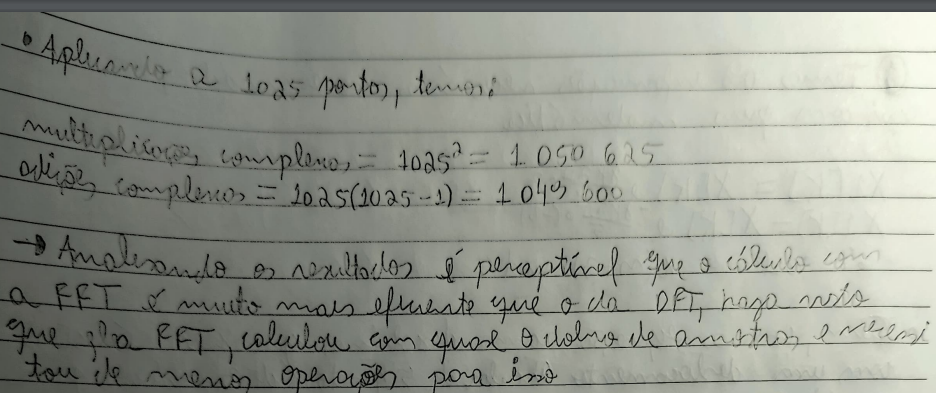 • Aplicando a 1025 pontos, temos:
multiplicações complexas = 1025² = 1.050.625
adições complexas = 1025(1025-1) = 1.049.600
→ Analisando os resultados é perceptível que o cálculo com
a FFT é muito mais eficiente que o da DFT, haja visto
que a FFT, calculou com quase o dobro de amostras e necessi
tou de menos operações para isso